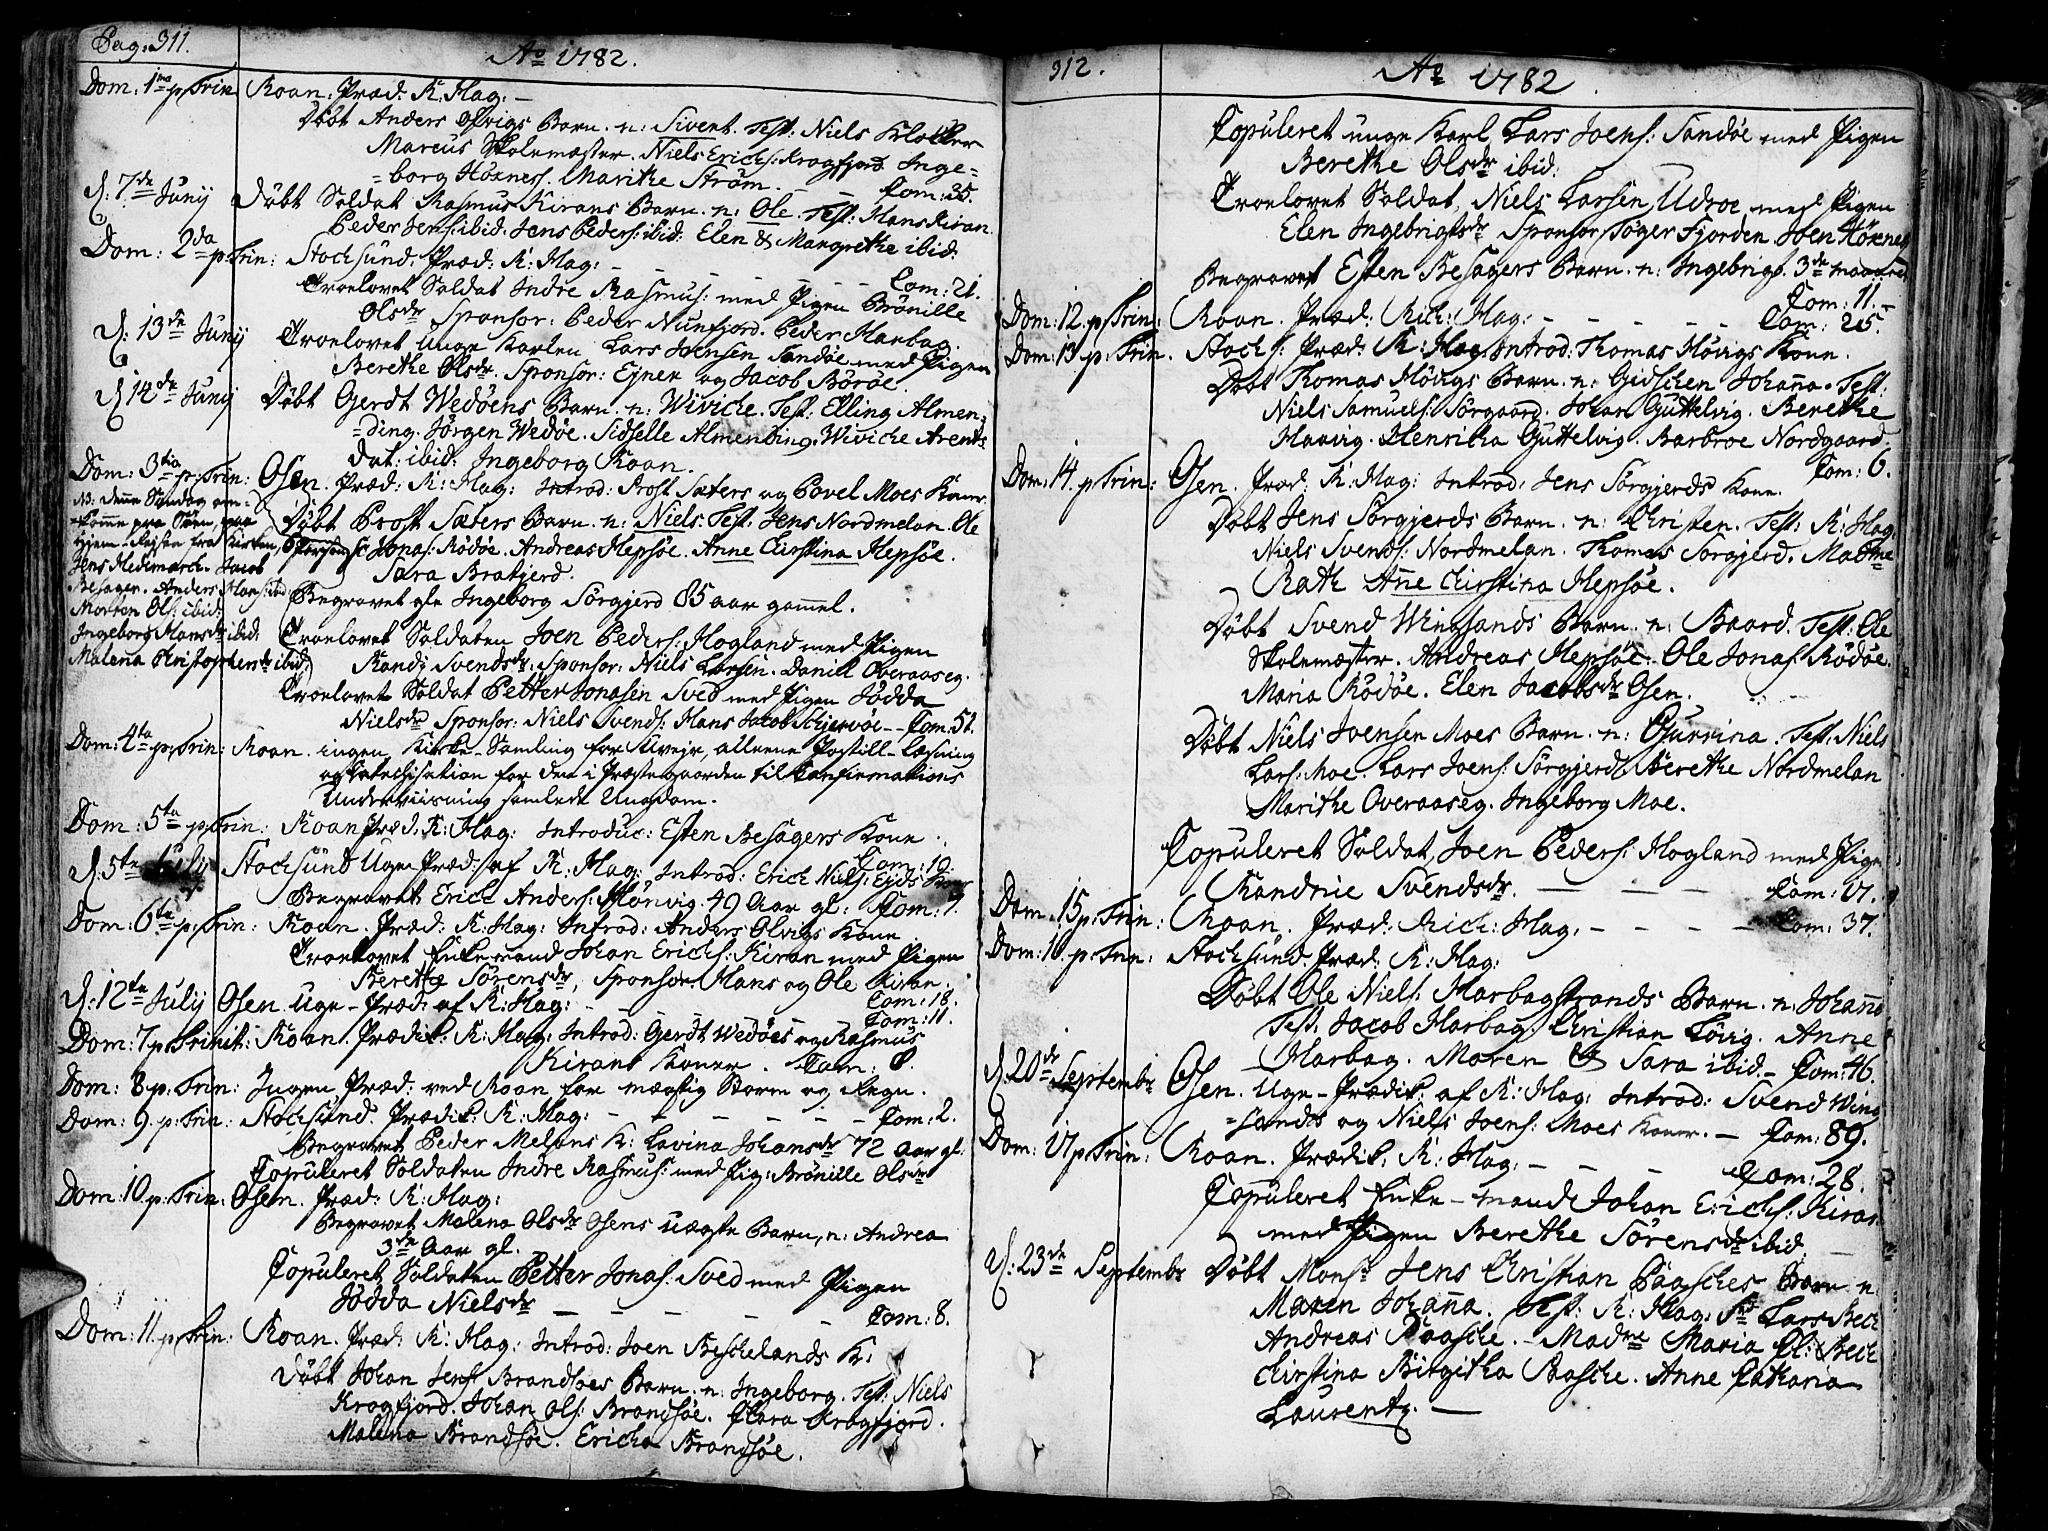 Pag. 311.
Ao 1782.
Dom: 1ma p. Trin Roan. Præd: R: Hag: —
Døbt Anders Olvigs Barn. n: Sivert. Test: Niels Klocker
Marcus Skolemæster. Niels Erichs: Kragfjord Inge-
-borg Hoxnes. Marithe Strøm. — — Com: 35.
d. 7de Junij Døbt Soldat Rasmus Kirans Barn. n: Ole. Test: Hans Kiran
Peder Jens: ibid. Jens Peders: ibid: Elen & Margrethe ibid.
Dom: 2da p. Trin: Stocksund. Præd: R: Hag: — — — Com: 21.
Troelovet Soldat Indre Rasmus: med Pigen Brønille
Olsdr Sponsor: Peder Nunfjord. Peder Harbag.
d: 13de Junij Troelovet Unge Karlen Lars Joensen Sandøe med Pigen
Berethe Olsdr. Sponsor: Ejner og Jacob Børøe.
d. 14de Junij Døbt Gerdt Wedøens Barn. n: Wiviche. Test: Elling Almen-
-ding. Jørgen Wedøe. Sidselle Almending. Wiviche Arents
dat: ibid: Ingeborg Roan.
Dom: 3tia p. Trin: Osen. Præd: R: Hag: Introd: Prost Sæters og Povel Moes Koner.
NB: denne Søndag om-
-komme paa Søen, paa
Hjem-Rejsen fra Kirken, 6 Personer
Jens Hedemarck. Jacob
Besager. Anders Hans: ibid
Morten Ols: ibid.
Ingeborg Hansdr ibid.
Malena Christophersdr ibid.
Døbt Prost Sæters Barn. n: Niels. Test: Jens Nordmelan. Ole
Jonas: Rødøe. Andreas Hepsøe. Anne Kirstina Hepsøe.
Sara Bratjerd.
Begravet gle Ingeborg Sørgjerd 85 aar gammel.
Troelovet Soldaten Joen Peders: Hogland med Pigen
Randi Svendsdr: Sponsor: Niels Larsen. Daniel Overaaseg.
Troelovet Soldat Petter Jonasen Sved med Pigen Jødda
Nielsdr Sponsor: Niels Svends: Hans Jacob Schjervøe — Com: 51.
Dom: 4ta p. Trin: Roan. ingen Kirke-Samling for Uvejr, alleene Postill-Læsning
og Catechisation for den i Præstegaarden til Confirmations
Underviisning samlede Ungdom.
Dom: 5ta p. Trin: Roan Præd. R: Hag: Introduc: Esten Besagers Kone.
Com: 19.
d. 5te July Stocksund Uge-Præd: af R: Hag: Introd: Erich Niels: Eids Kone
Begravet Erich Anders: Hønvig. 49 Aar gl: Com: 7.
Dom: 6te p. Trin: Roan. Præd: R: Hag: Introd: Anders Olvigs Kone
Troelovet Enkemand Johan Erichs: Kiran med Pigen
Berethe Sørensdr, Sponsor Hans og Ole Kiran.
Com: 18.
d: 12te July Osen uge-Præd: af R: Hag: — — — Com: 11.
Dom: 7 p. Trinit: Roan. Prædik: R: Hag: Introd: Gerdt Wedøes og Rasmus
Kirans Koner. — Com: 8.
Dom: 8 p. Trin: Ingen Præd: ved Roan for mægtig Storm og Regn.
Dom: 9. p: Trin: Stocksund. Prædik: R: Hag: — — — — — Com: 2.
Begravet Peder Melans K: Lavina Johansdr 72 Aar gl:
Copuleret Soldaten Indre Rasmus: med Pig: Brønille Olsdr
Dom: 10. p: Trin: Osen. Præd: R: Hag:
Begravet Malena Olsdr Osens uægte Barn, n: Andrea
3de Aar gl.
Copuleret Soldaten Petter Jonas: Sved med Pigen
Jødda Nielsdr — — — — — Com: 8.
Dom: 11. p: Trin: Roan. Præd: R: Hag: Introd: Joen Beskelands K:
Døbt Johan Jens: Brandsøes Barn. n: Ingeborg. Test: Niels
Kragfjord. Johan Ols: Brandsøe. Clara Kragfjord.
Malena Brandsøe. Ericha Brandsøe.
312.
Ao 1782.
Copuleret unge Karl Lars Joens: Sandøe med Pigen
Berethe Olsdr ibid.
Troelovet Soldat, Niels Larsen Udroe med Pigen
Elen Ingebrigtsdr Sponsor Tøger Fjorden. Joen Hoxnes
Begravet Esten Besagers Barn. n: Ingebrigt. 3de maaned
Com: 11.
Dom: 12. p. Trin: Roan. Præd: Rich: Hag: — — — — — Com: 25.
Dom: 13 p: Trin. Stocks: Præd: R: Hag: Introd: Thomas Høvigs Kone.
Døbt Thomas Høvigs Barn. n: Gidschen Johanna. Test:
Niels Samuels: Sørgaard. Johan Guttelvig. Berethe
Haavig. Henricha Guttelvig. Barbroe Nordgaard.
Com: 6.
Dom: 14. p Trin: Osen. Præd: R: Hag: Introd: Jens Sørgjerds Kone.
Døbt Jens Sørgjerds Barn. n: Christen. Test: R: Hag:
Niels Svends: Nordmelan. Thomas Sørgjerd. Madme
Rath Anne Kirstina Hepsøe.
Døbt Svend Wingsands Barn. n: Baard. Test: Ole
Skolemæster. Andreas Hepsøe. Ole Jonas: Rødøe.
Maria Rødøe. Elen Jacobsdr Osen.
Døbt Niels Joensen Moes Barn. n: Gurrina. Test: Niels
Lars: Moe. Lars Joens: Sørgjerd Berethe Nordmelan
Marithe Overaaseg. Ingeborg Moe.
Copuleret Soldat, Joen Peders: Hogland med Pigen
Randrie Svendsdr. — — — Com: 17.
Dom: 15 p. Trin: Roan. Præd: Rich: Hag. — — — — Com: 37.
Dom: 16. p: Trin: Stocksund. Præd: R: Hag:
Døbt Ole Niels: Harbagstrands Barn. n: Johanne
Test: Jacob Harbag. Christian Løvig. Anne
Harbag. Maren & Sara ibid — Com: 46.
d. 20de Septembr Osen. Uge-Prædik: af R: Hag: Introd: Svend Wing
-sands og Niels Joens: Moes Koner. — Com: 89.
Dom: 17 p. Trin: Roan. Prædik: R: Hag: — — — Com: 28.
Copuleret Enke-mand Johan Erichs: Kiran
med Pigen Berethe Sørensdr ibid.
d: 23de Septembr Døbt Monsr Jens Christian Paasches Barn n:
Maren Johanna. Test: R: Hag: Sr Lars Bech
Andreas Paasche. — Madme Maria El: Bech
Kirstina Birgitha Paasche. Anne Catharia
Laurentz. —